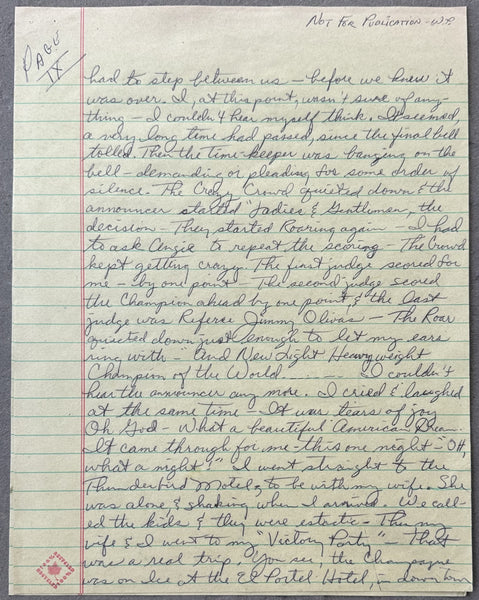 NOT FOR PUBLICATION - W.P.
PAGE
IX
had to step between us — before we knew it
was over. I, at this point, wasn't sure of any-
thing — I couldn't hear myself think. It seemed,
a very long time had passed, since the final bell
tolled. Then the time keeper was banging on the
bell - demanding or pleading for some order of
silence. The Crazy Crowd quieted down & the
announcer started "Ladies & Gentlemen, the
decision - They started Roaring again - I had
to ask Angie to repeat the scoring - The Crowd
kept getting crazy. The first judge scored for
me - by one point - The second judge scored
the Champion ahead by one point & the last
judge was Referee Jimmy Olivas - The Roar
quieted down just enough to let my ears
ring with - "And New Light Heavyweight
Champion of the World ---- I couldn't
hear the announcer any more. I cried & laughed
at the same time - It was tears of joy
Oh God - What a beautiful American Dream.
It came through for me - this one night - "Oh,
what a night!" I went straight to the
Thunderbird Motel, to be with my wife. She
was alone & shaking when I arrived. We call-
ed the kids & they were estatic - Then my
wife & I went to my "Victory Party" - That
was a real trip. You see, the Champagne
was on Ice at the El Cortez Hotel, in down town